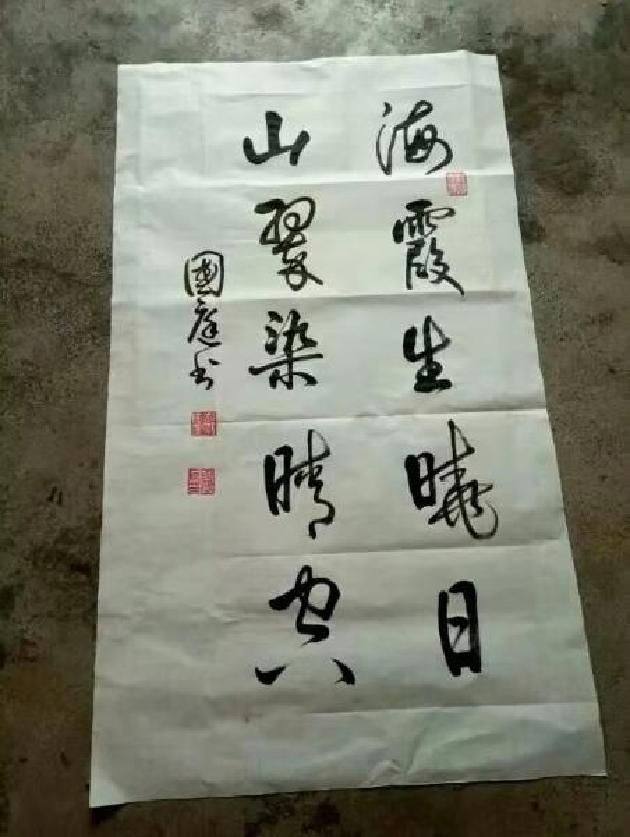 海霞生曉日
山翠染晴
國庭书